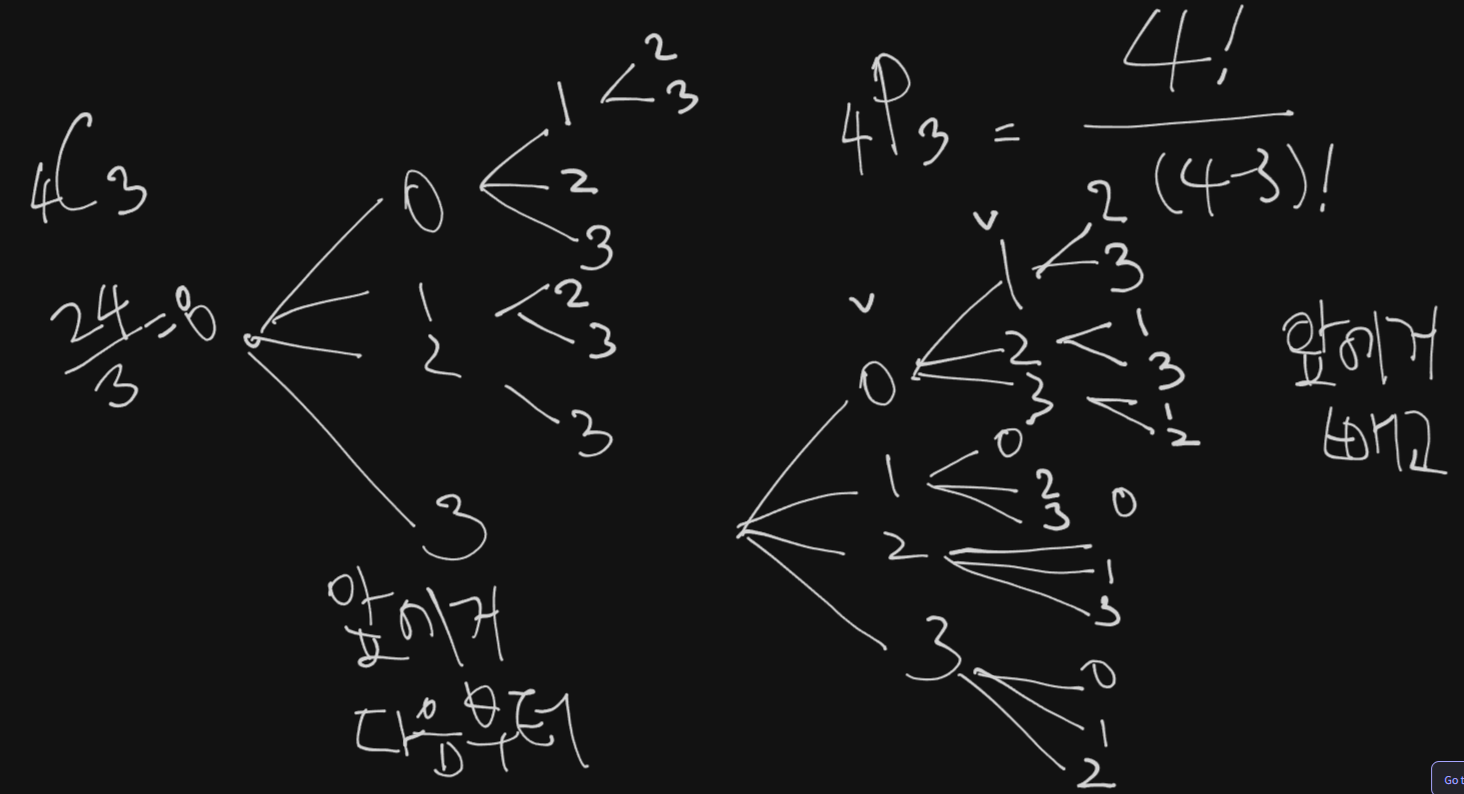 ₄C₃
24/3 = 8
0
1 < 2 3
2
3
1
2
3
2
3
3
앞이거
다음부터
₄P₃ = 4! / (4-3)!
v
v
0
1 < 2 3
2 < 1 3
3
1
2
1
0
2
3
0
2
1
3
3
0
1
2
앞이거
빼고
Go t